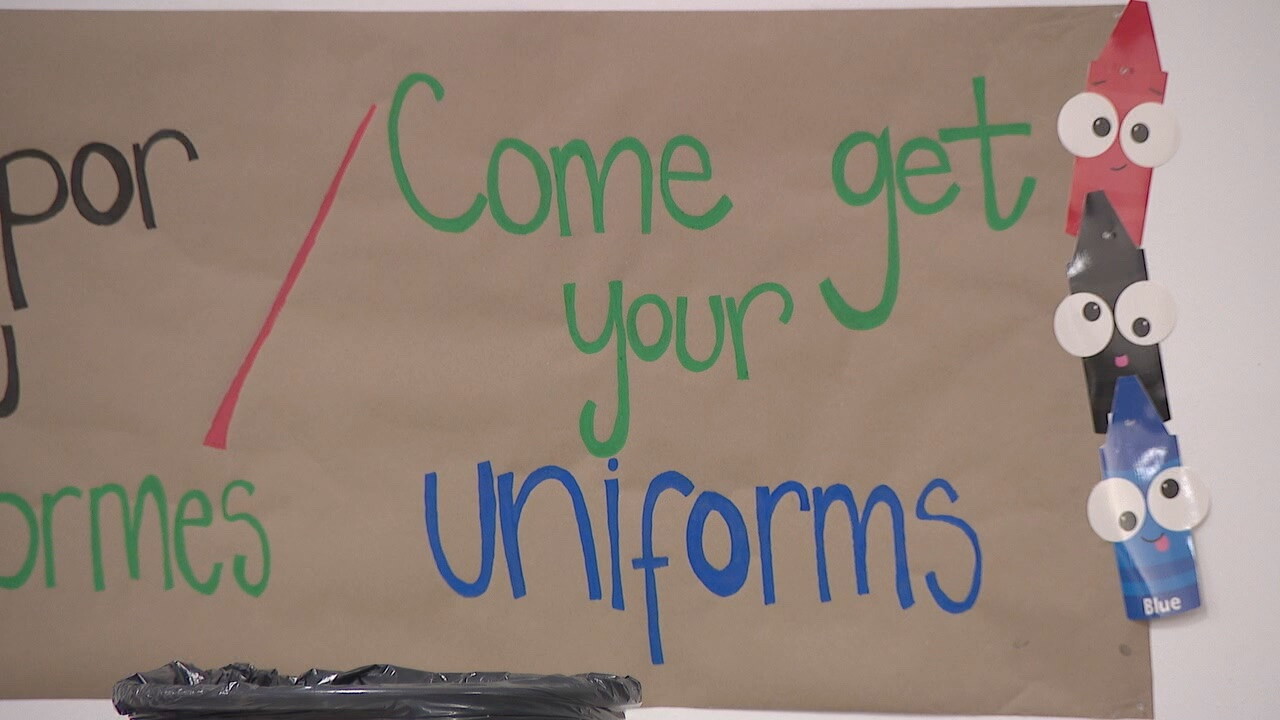 por / Come get
your
ormes uniforms
Blue